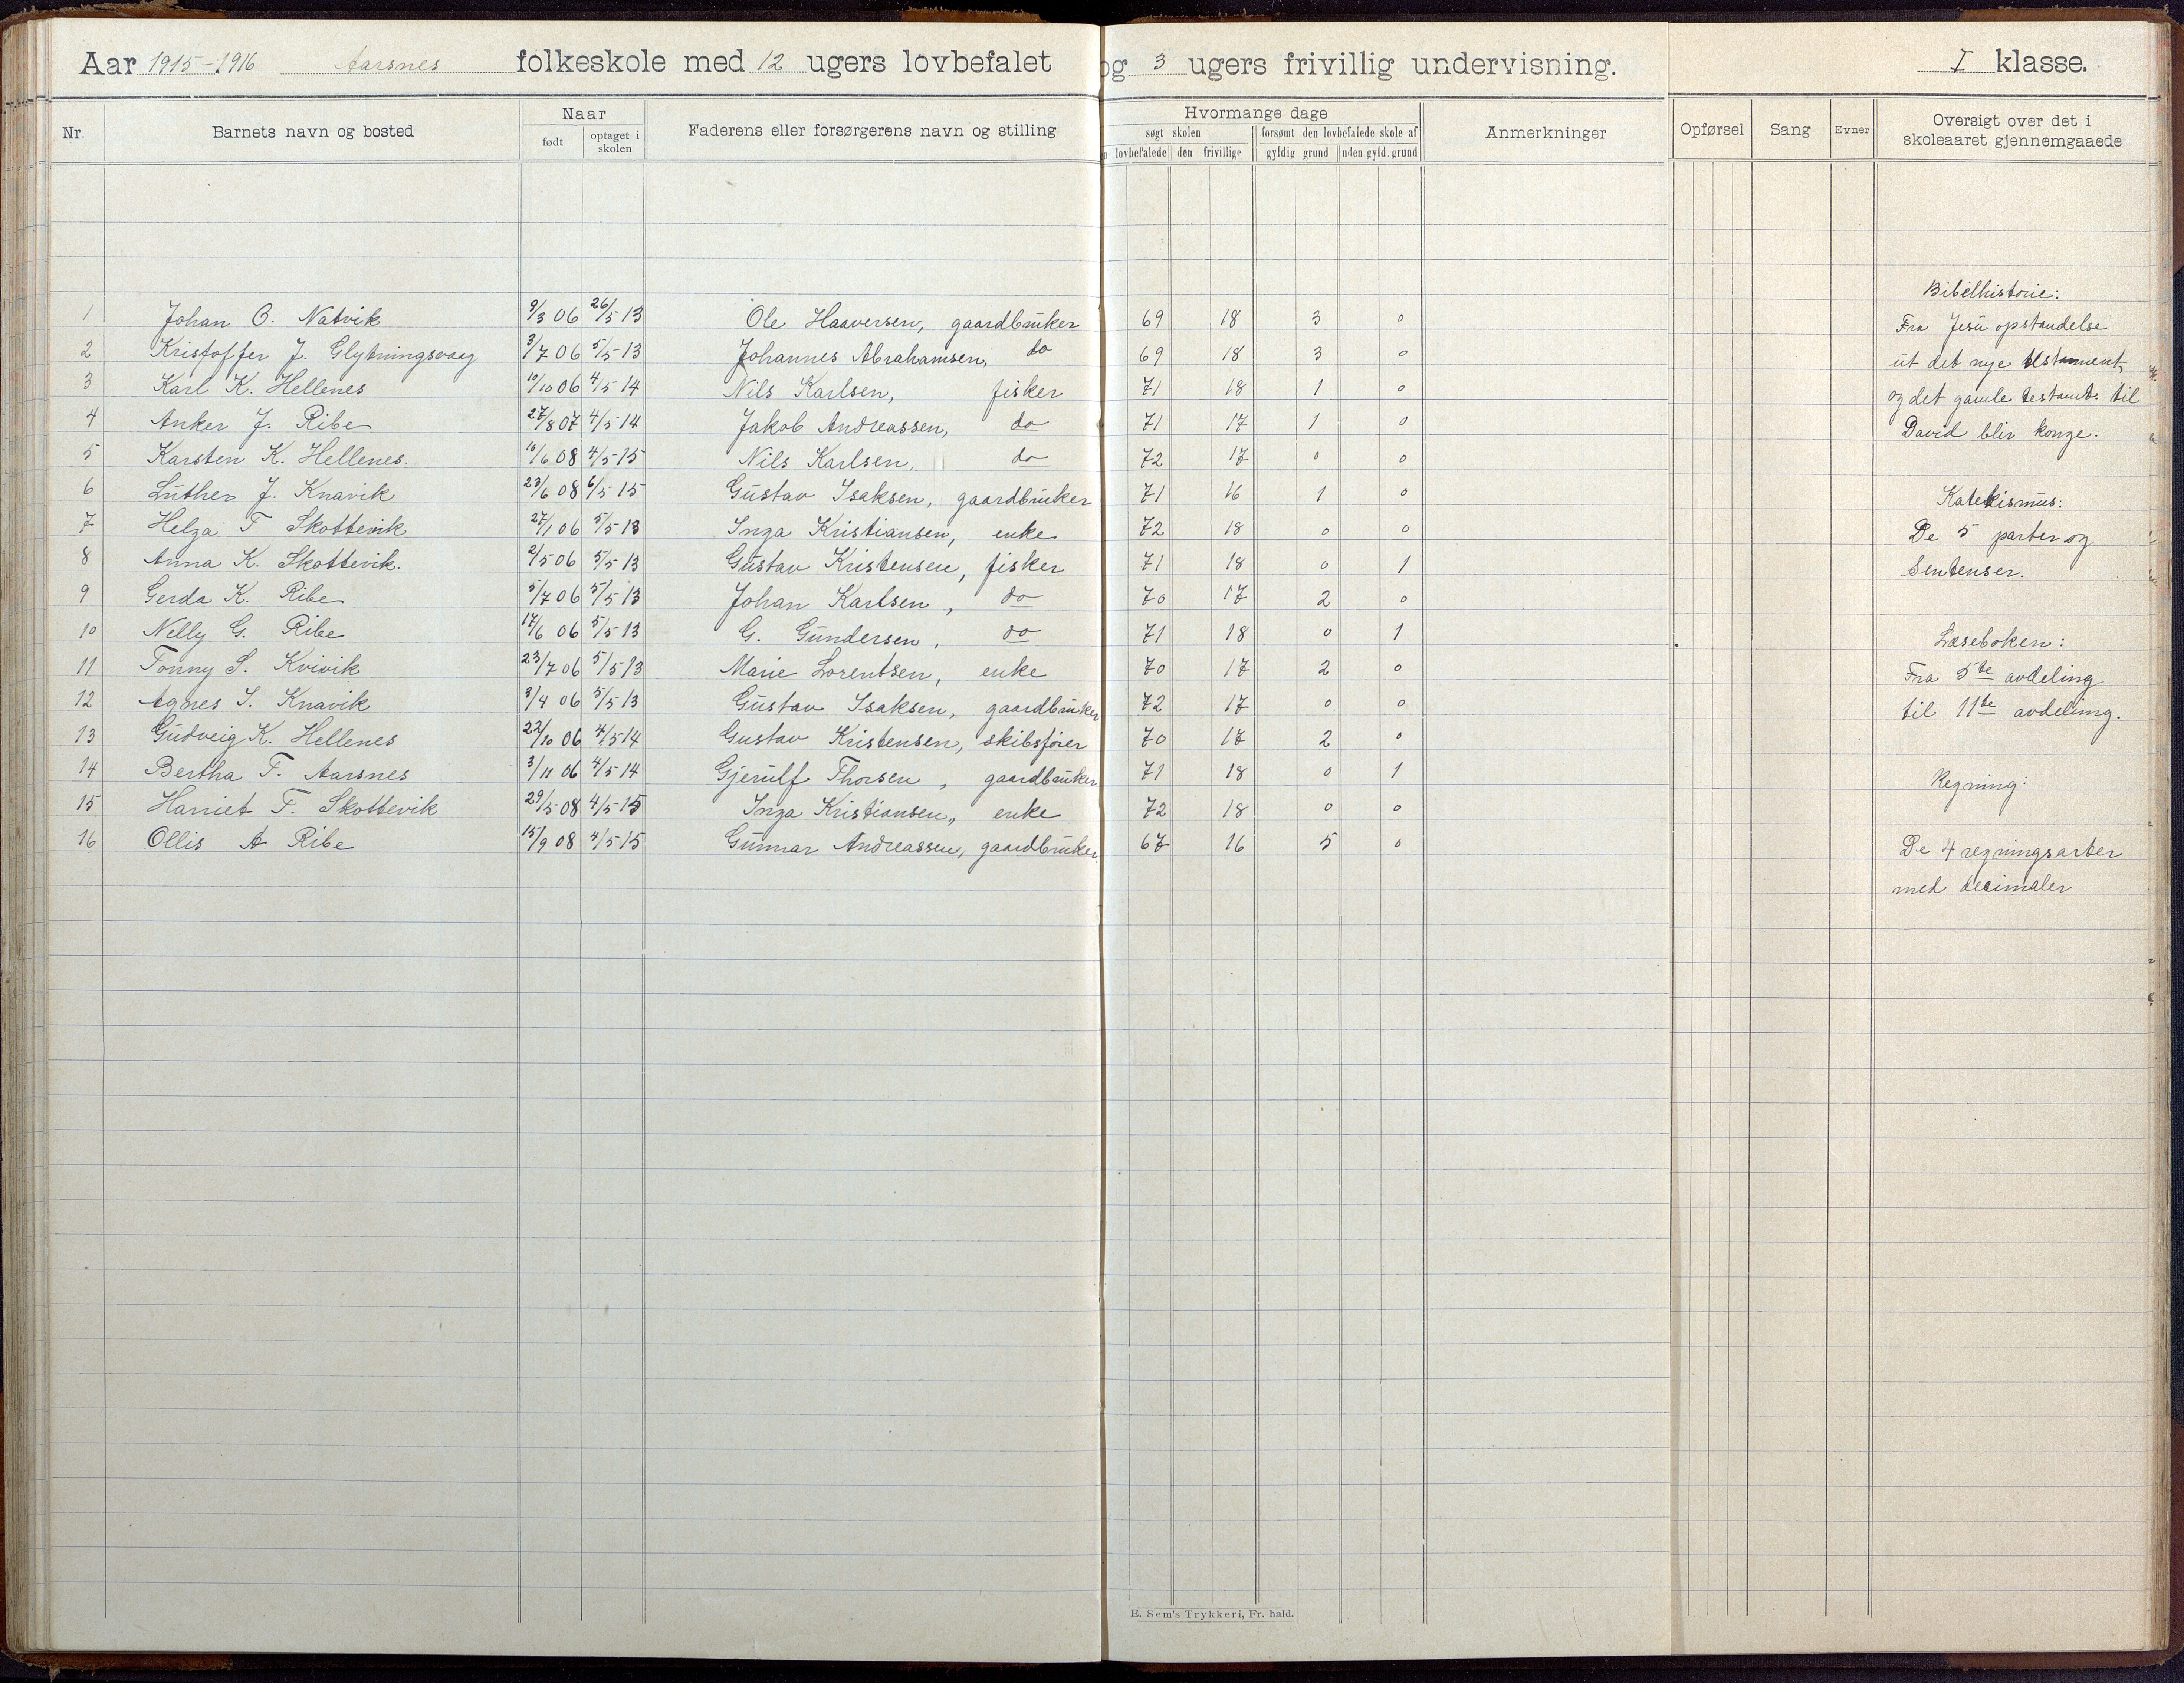 Aar 1915-1916 Aarsnes folkeskole med 12 ugers lovbefalet og 3 ugers frivillig undervisning. I klasse.
Nr. Barnets navn og bosted Naar født optaget i skolen Faderens eller forsørgerens navn og stilling Hvormange dage søgt skolen lovbefalede den frivillige forsømt den lovbefalede skole af gyldig grund uden gyld. grund Anmerkninger Opførsel Sang Evner Oversigt over det i skoleaaret gjennemgaaede
Bibelhistorie:
1 Johan O. Natvik 9/3 06 26/5 13 Ole Haaversen, gaardbruker 69 18 3 0 Fra Jesu opstandelse
2 Kristoffer J. Glytningsvaag 3/7 06 5/5 13 Johannes Abrahamsen, do 69 18 3 0 ut det nye testament
3 Karl K. Hellenes 10/10 06 4/5 14 Nils Karlsen, fisker 71 18 1 0 og det gamle testamt. til
4 Anker J. Ribe 27/8 07 4/5 14 Jakob Andreassen, do 71 17 1 0 David blir konge.
5 Karsten K. Hellenes. 10/6 08 4/5 15 Nils Karlsen, do 72 17 0 0
6 Luther J. Knavik 23/6 08 6/5 15 Gustav Isaksen, gaardbruker 71 16 1 0 Katekismus:
7 Helga T Skottevik 27/1 06 5/5 13 Inga Kristiansen, enke 72 18 0 0 De 5 parter og
8 Anna K. Skottevik. 2/5 06 5/5 13 Gustav Kristensen, fisker 71 18 0 1 Sentenser.
9 Gerda K. Ribe 5/7 06 5/5 13 Johan Karlsen, do 70 17 2 0
10 Nelly G. Ribe 17/6 06 5/5 13 G. Gundersen, do 71 18 0 1 Læseboken:
11 Tonny S. Kvivik 23/7 06 5/5 13 Marie Lorentsen, enke 70 17 2 0 Fra 5te avdeling
12 Agnes I. Knavik 3/4 06 5/5 13 Gustav Isaksen, gaardbruker 72 17 0 0 til 11te avdeling.
13 Gudveig K. Hellenes 22/10 06 4/5 14 Gustav Kristensen, skibsfører 70 17 2 0
14 Bertha T. Aarsnes 3/11 06 4/5 14 Gjerulf Thorsen, gaardbruker 71 18 0 1 Regning:
15 Harriet T. Skottevik 29/5 08 4/5 15 Inga Kristiansen, enke 72 18 0 0
16 Ollis A Ribe 15/9 08 4/5 15 Gunnar Andreassen, gaardbruker. 67 16 5 0 De 4 regningsarter
med decimaler
E. Sem's Trykkeri, Fr. hald.